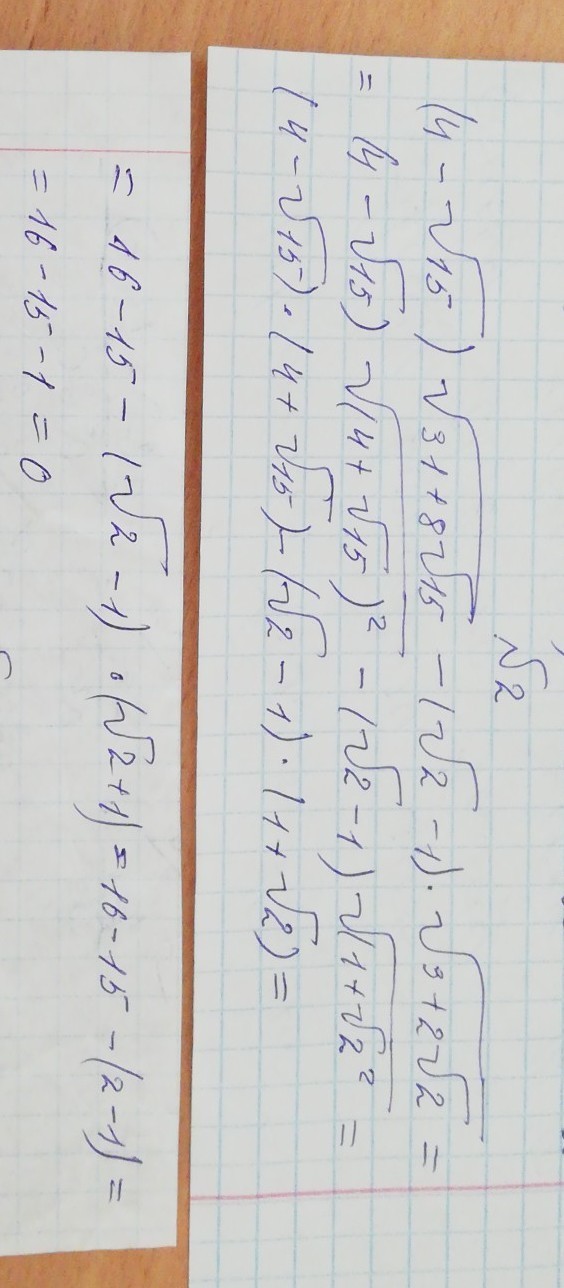 √2
(4 - √15) √31+8√15 - (√2 - 1) · √3+2√2 =
= (4 - √15) √(4+√15)² - (√2 - 1) √(1+√2² =
(4 - √15) · (4 + √15) - (√2 - 1) · (1+√2) =
= 16 - 15 - (√2 - 1) · (√2+1) = 16 - 15 - (2 - 1) =
= 16 - 15 - 1 = 0